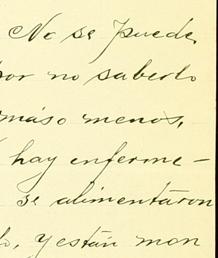 No se puede
por no saberlo
más o menos,
hay enferme-
se alimentaron
, y están mon